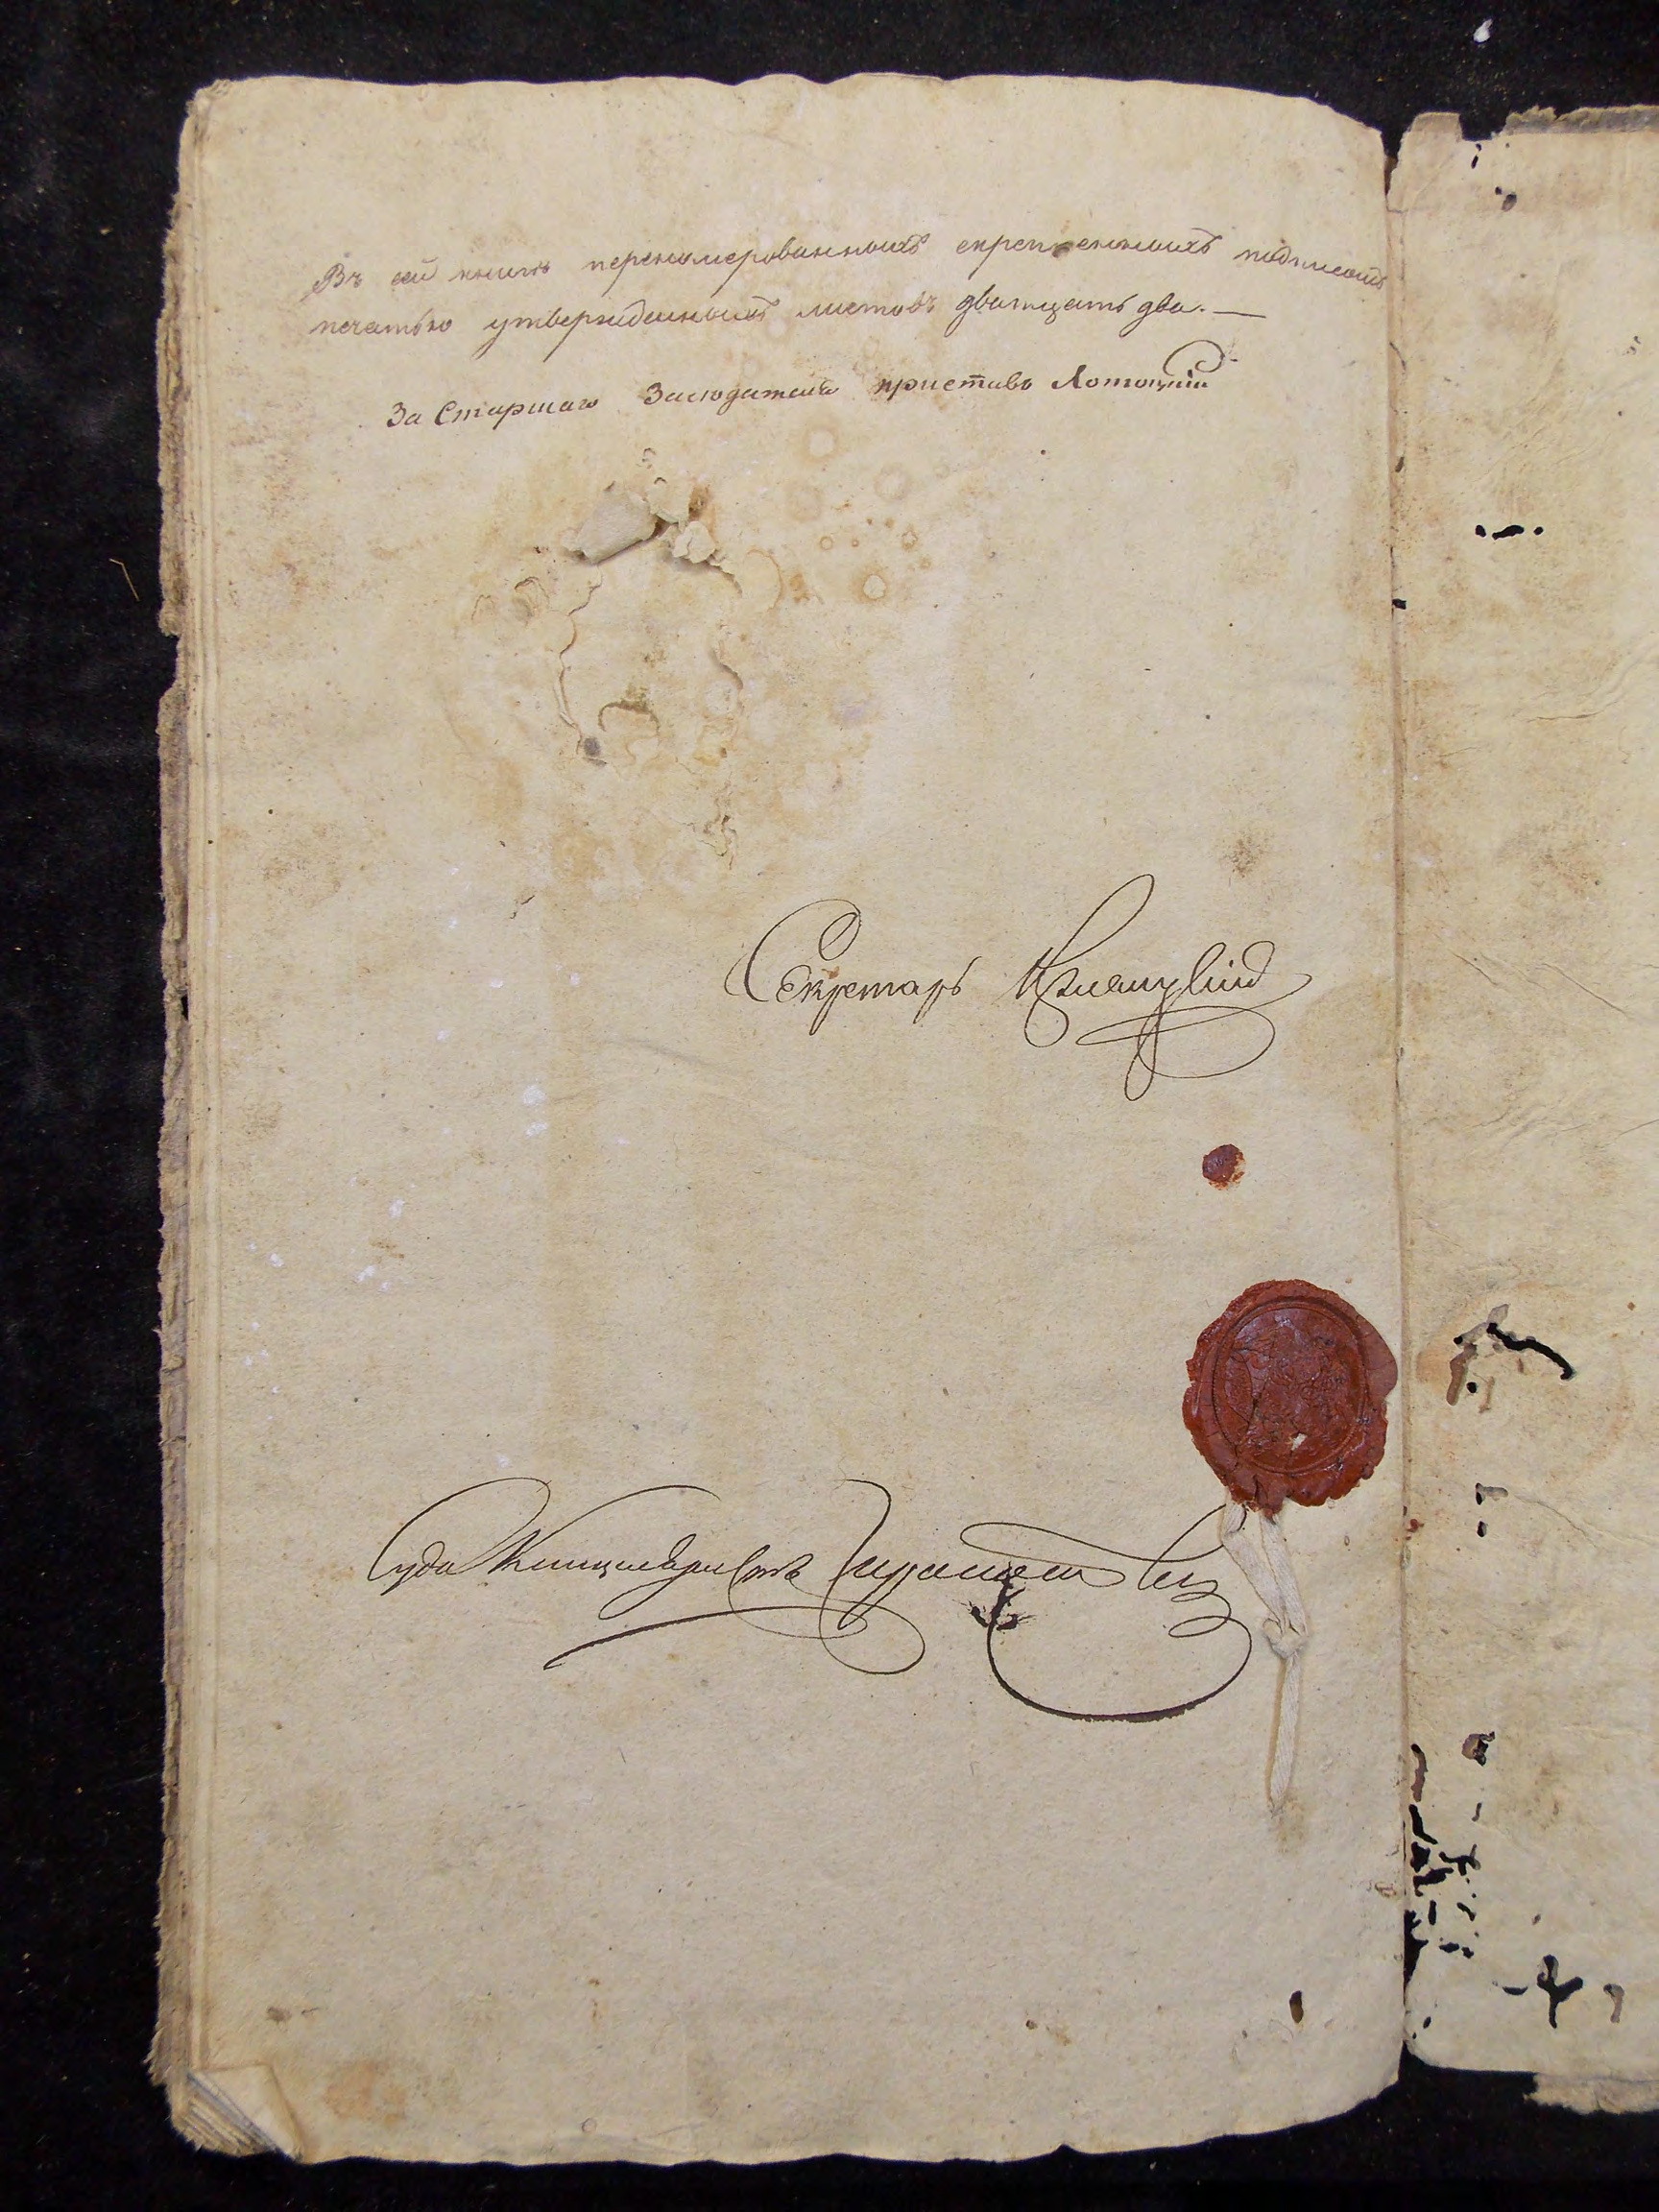 Въ сей книгѣ перенумерованныхъ скрепленныхъ подписомъ
печатью утвержденныхъ листовъ дватцать два. —
За Старшаго Заседателя приставъ Лотоцкій
Секретарь
Суда